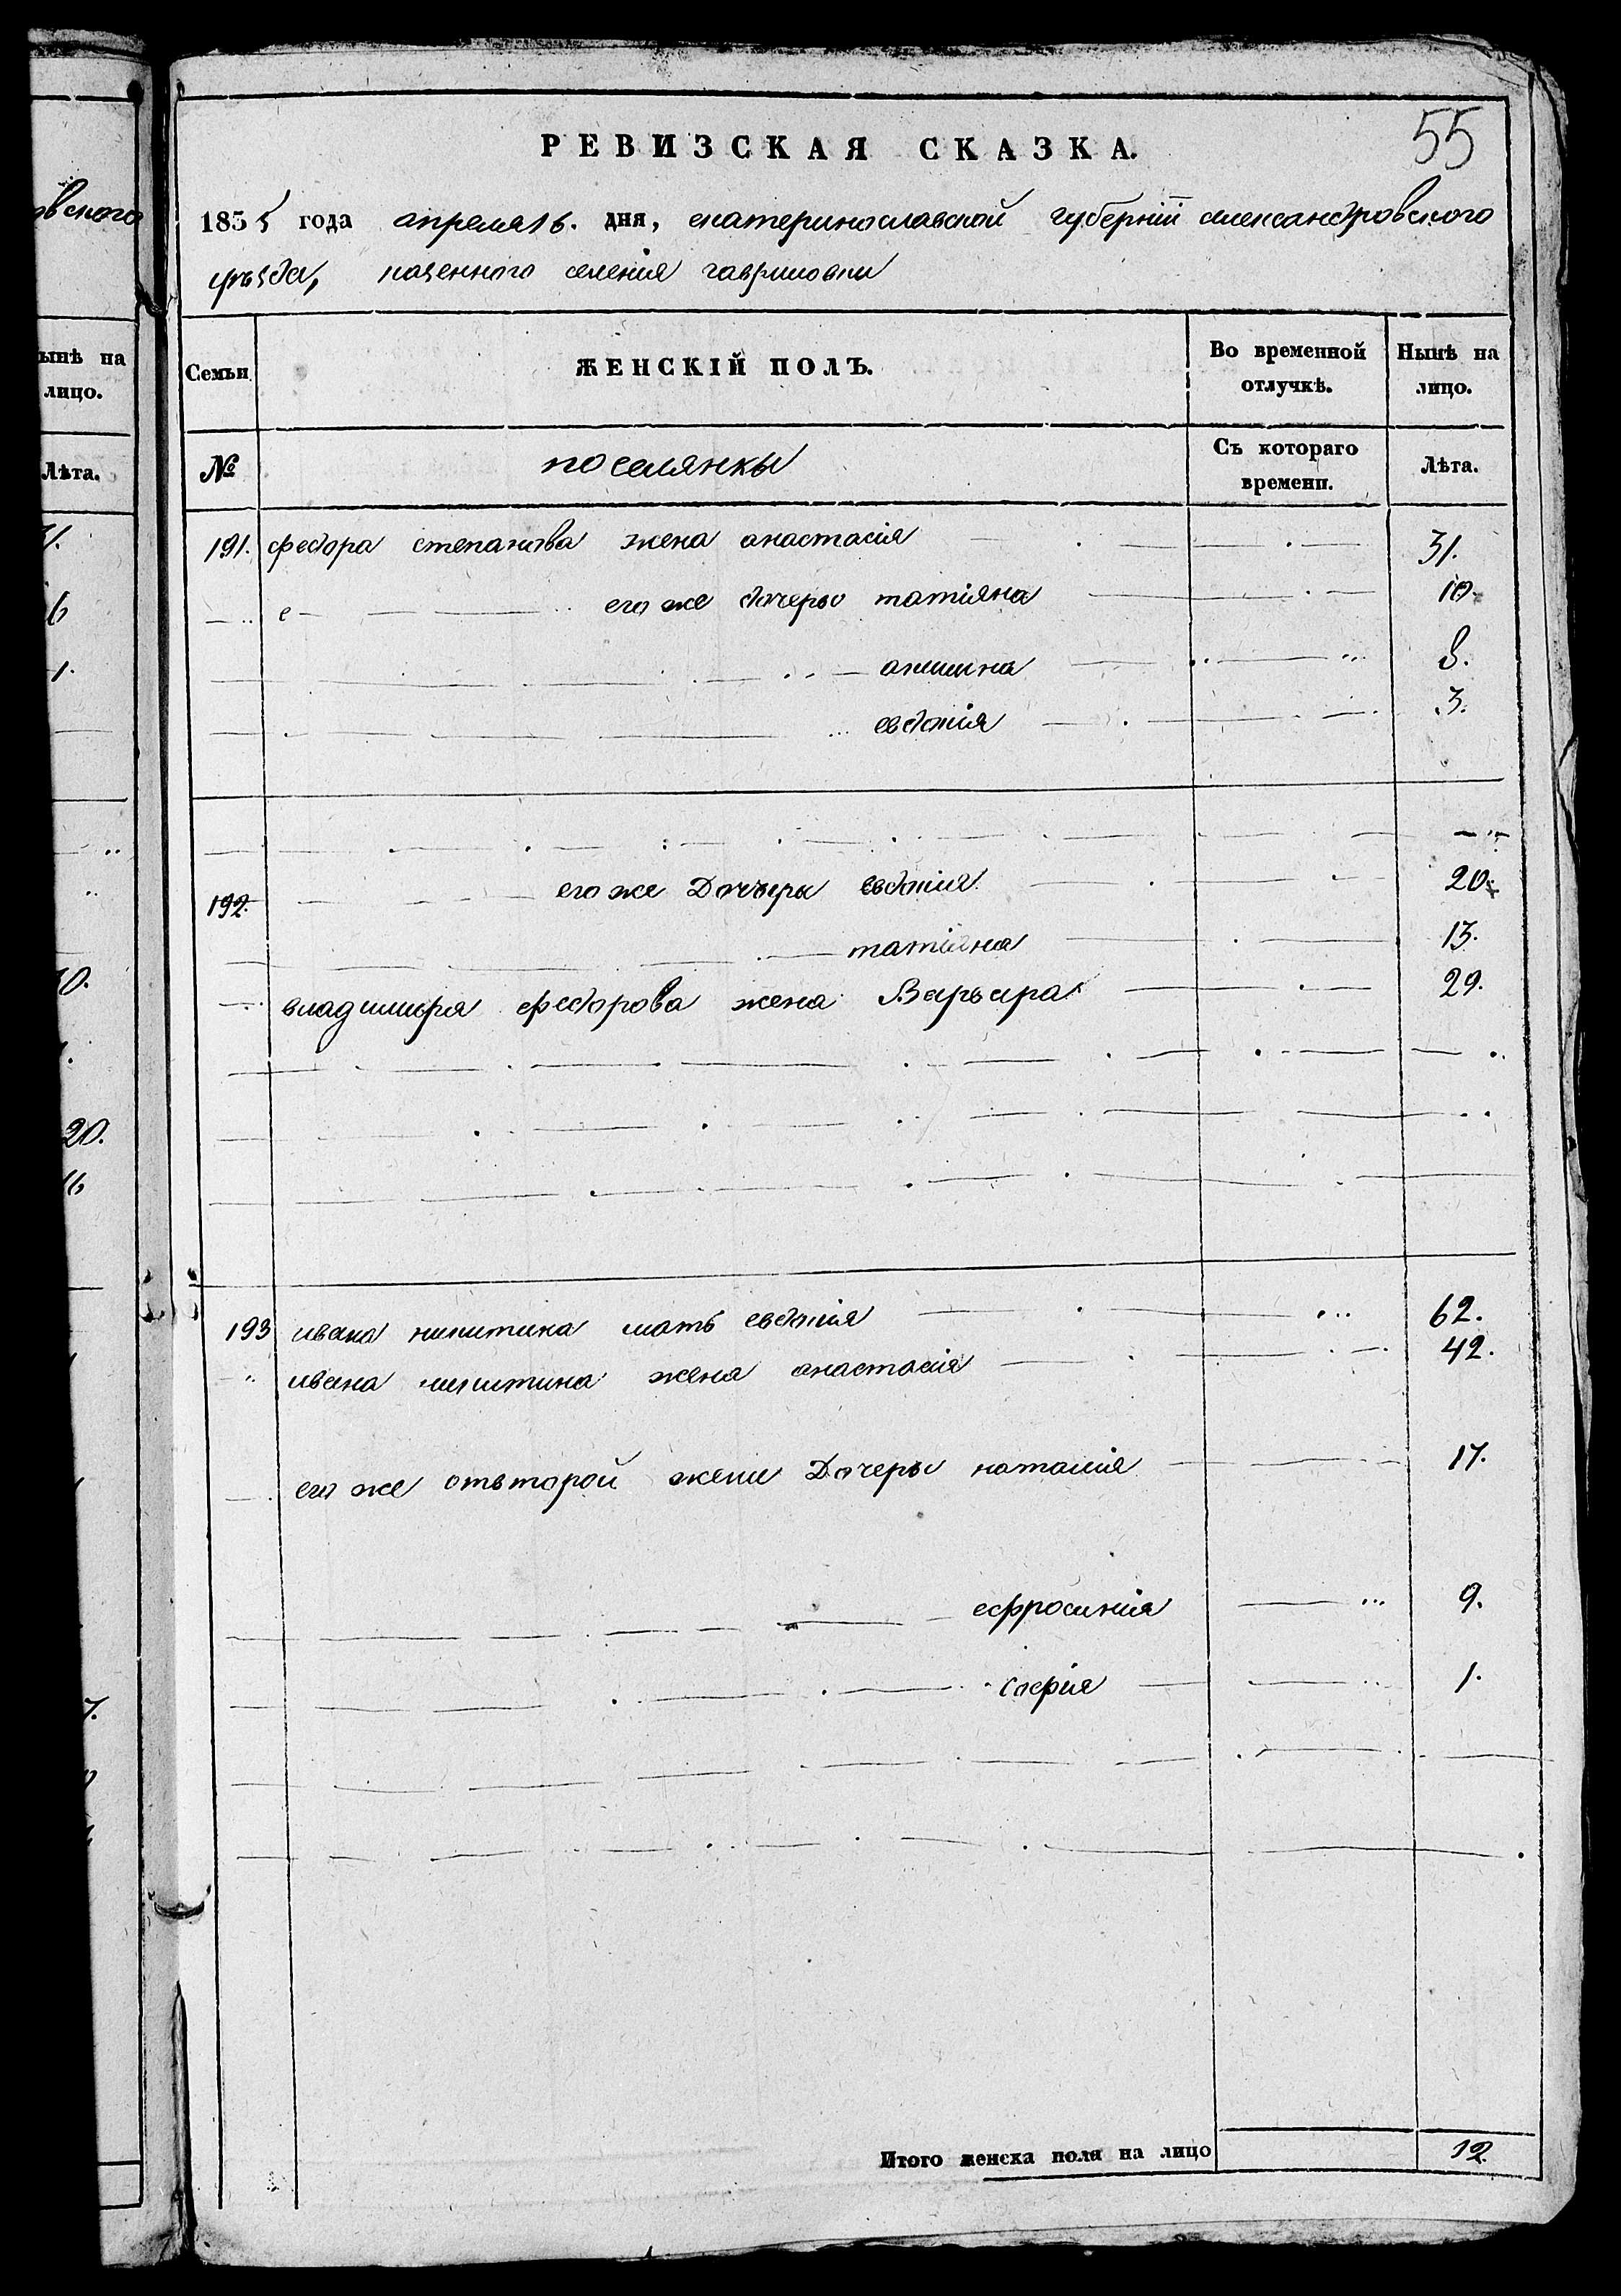 вского
ынѣ на
лицо.
Лѣта.
6
20.
16
7.
55
РЕВИЗСКАЯ СКАЗКА.
1835 года апреля 16. дня, екатеринославской губернiи александровского
уѣзда, казенного селенiя гавриловки
Семьи
ЖЕНСКIЙ ПОЛЪ.
Во временной отлучкѣ.
Нынѣ на лицо.
№
поселянкы
Съ котораго времени.
Лѣта.
191. федора степанова жена анастасiя 31.
его же дочеры татiяна 10.
акилина 8.
евдокiя 3.
192. его же Дочъеры евдокiя 20.
татiана 13.
владимира федорова жена Варъвара 29.
193 ивана никитина мать евдокiя 62.
ивана никитина жена анастасiя 42.
его же отвторой жени Дочеры наталiя 17.
ефросинiя 9.
софiя 1.
Итого женска пола на лицо 12.